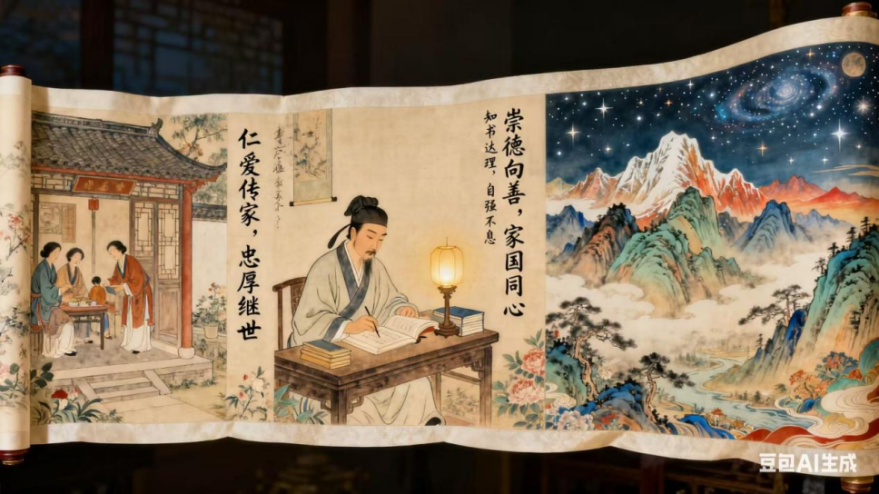 仁爱传家，忠厚继世
崇德向善，家国同心
知书达理，自强不息
豆包AI生成